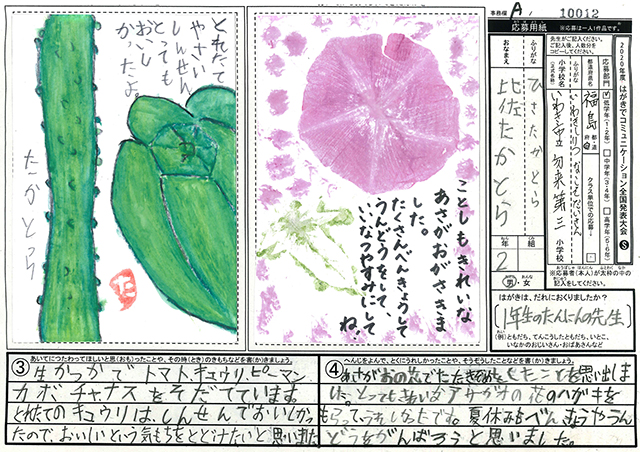 事務欄 A 10012
応募用紙
※応募は一人1作品です。
2020年度 はがきでコミュニケーション全国発表大会 S
先生がご記入ください。
ご記入後、人数分を
コピーしてください。
応募部門
低学年(1・2年)
中学年(3・4年)
高学年(5・6年)
都道府県名
福島
都・道
府・県
クラス単位での応募
ふりがな
小学校名
(正式名称)
いわき市立 勿来第三 小学校
ふりがな
ひさ たかとら
おなまえ
比佐たかとら
2年 組
男 女
※応募者(本人)が太わくの中の
記入をしてください。
はがきは、だれにおくりましたか?
1年生のたんにんの先生
(例)ともだち、てんこうしたともだち、いとこ、
いなかのおじいさん・おばあさんなど
とれたて
やさい
しんせん
とっても
おいし
かったよ。
たかとら
ことしもきれいな
あさがおがさきま
した。
たくさんべんきょうして
うんどうをして、
いいなつやすみにして
ね。
③ あいてにつたわってほしいと思(おも)ったことや、その時(とき)のきもちなどを書(か)きましょう。
生かつかで トマト キュウリ、ピーマン
カボチャ ナスをそだてています。
とれたてのキュウリは、しんせんでおいしかっ
たので、おいしいという気もちをとどけたいと思いました
④ へんじをよんで、とくにうれしかったことや、そうぞうしたことなどを書(か)きましょう。
あさがおの花でたたきぞめをしたことを思い出しま
した。とってもきれいなアサガオの花のハガキを
もらって、うれしかったです。夏休みもべんきょうやうん
どうをがんばろうと思いました。